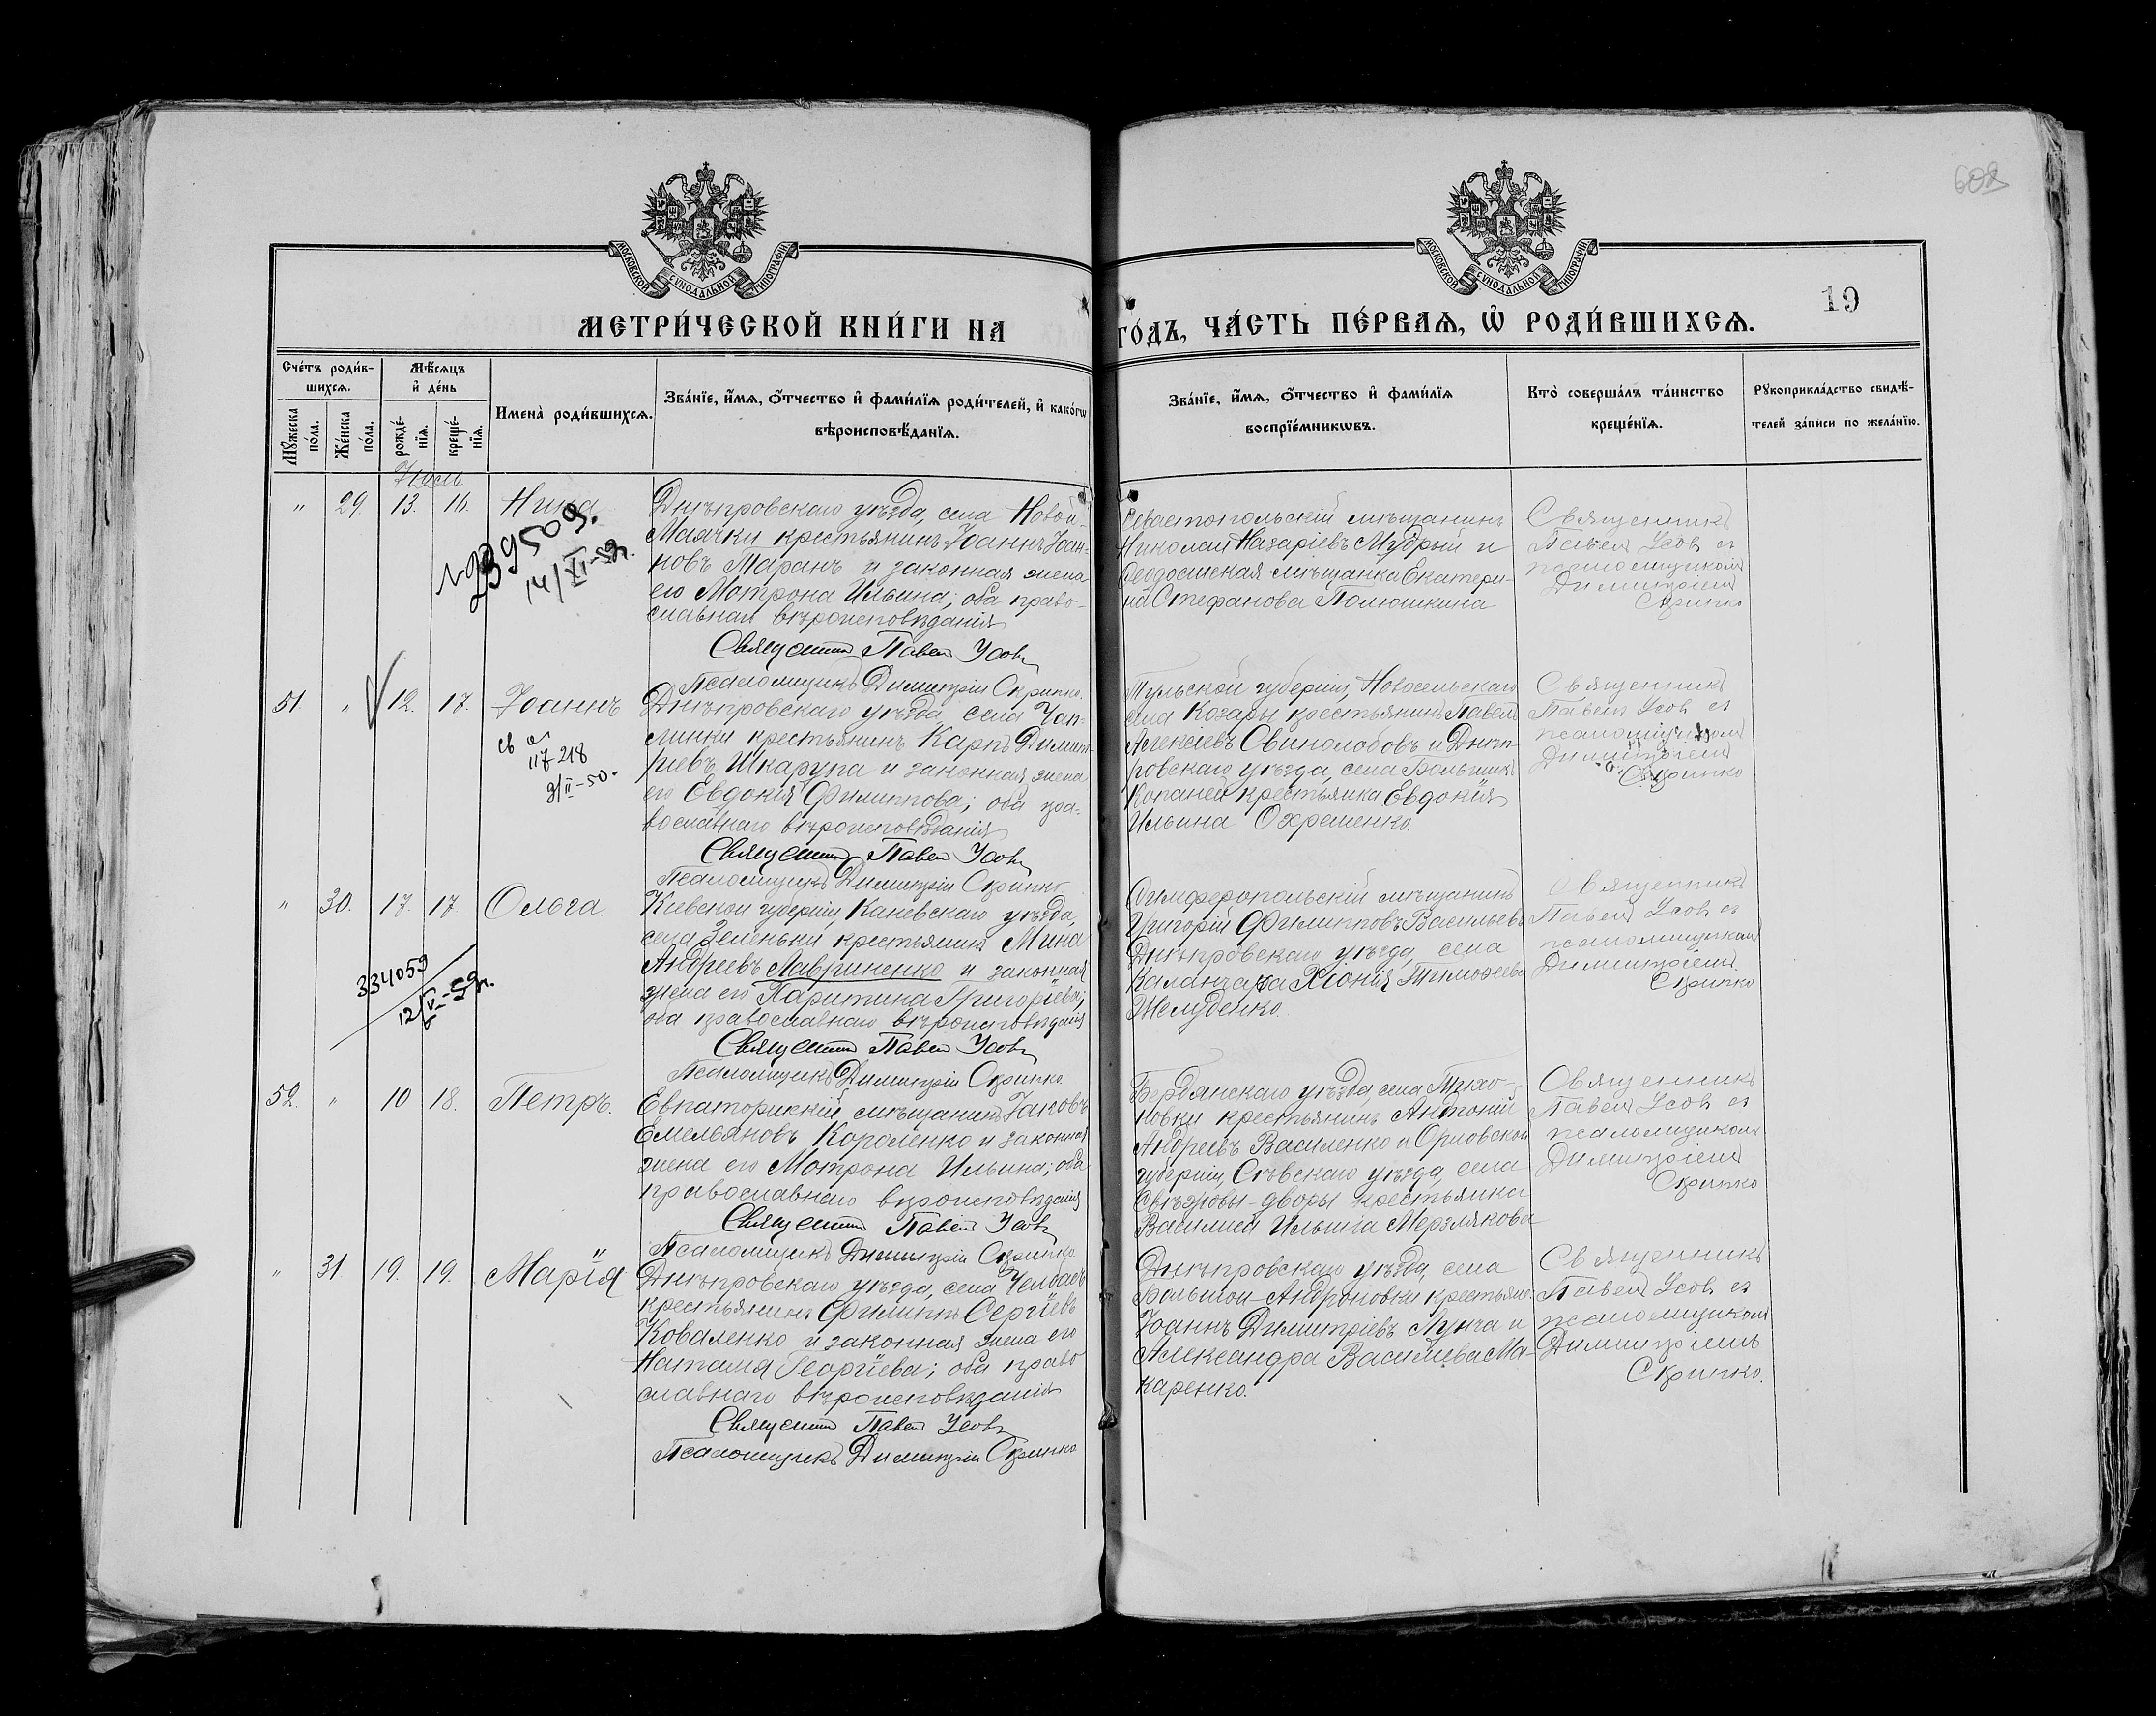 608
МОСКОВСКОЙ СУНОДАЛЬНОЙ ТИПОГРАФІИ
МОСКОВСКОЙ СУНОДАЛЬНОЙ ТИПОГРАФІИ
19
МЕТРИ́ЧЕСКОЙ КНИ́ГИ НА
ГО́ДЪ, ЧА́СТЬ ПЕ́РВАѦ, Ѿ РОДИ́ВШИХСѦ.
Сче́тъ роди́в-
шихсѧ.
Мꙋ́жеска по́ла.
Же́нска по́ла.
Мѣ́сѧцъ
и҆ де́нь
рожде́-нїѧ.
креще́-нїѧ.
Имена̀ роди́вшихсѧ.
Зва́нїе, и҆́мѧ, ѻ҆́тчество и҆ фами́лїѧ роди́телей, и҆ како́гѡ
вѣроисповѣ́данїѧ.
Зва́нїе, и҆́мѧ, ѻ҆́тчество и҆ фами́лїѧ
воспрїе́мникѡвъ.
Кто̀ соверша́лъ та́инство
креще́нїѧ.
Рꙋкоприкла́дство свидѣ́-
телей за́писи по жела́нїю.
Іюль
" 29. 13. 16. Нина
239509.
14/XI-59г.
Днѣпровскаго уѣзда, села Новой-
Маячки крестьянинъ Іоаннъ Іоан-
новъ Таранъ и законная жена
его Матрона Ильина; оба право-
славнаго вѣроисповѣданія
Священник Павел Усовъ
Псаломщикъ Димитрій Скрипко.
Севастопольскій мѣщанинъ
Николай Назаріевъ Мудрый и
Ѳеодосійская мѣщанка Екатери-
на Стефанова Полюшкина
Священникъ
Павелъ Усовъ съ
псаломщикомъ
Димитріемъ
Скрипко
51. " 12. 17. Іоаннъ
117218
9/II-50.
Днѣпровскаго уѣзда, села Чап-
линки крестьянинъ Карпъ Димит-
ріевъ Шкарупа и законная жена
его Евдокія Филиппова; оба пра-
вославнаго вѣроисповѣданія
Священник Павел Усовъ
Псаломщикъ Димитрій Скрипко
Тульской губерніи, Новосельскаго
села Козары крестьянинъ Павелъ
Алексеевъ Свинолобовъ и Днѣп-
ровскаго уѣзда, села Большихъ
Копаней крестьянка Евдокія
Ильина Охременко.
Священникъ
Павелъ Усовъ съ
псаломщикомъ
Димитріемъ
Скрипко
" 30. 17. 17. Ольга.
334059
12/V-59г.
Кіевской губерніи, Каневскаго уѣзда,
села Зеленьки, крестьянинъ Мина
Андреевъ Лавриненко и законная
жена его Харитина Григоріева;
оба православнаго вѣроисповѣданія
Священник Павел Усовъ
Псаломщикъ Димитрій Скрипко
Симферопольскій мѣщанинъ
Григорій Филипповъ Васильевъ
Днѣпровскаго уѣзда, села
Каланчака Хіонія Тимоѳеева
Шелуденко.
Священникъ
Павелъ Усовъ съ
псаломщикомъ
Димитріемъ
Скрипко
52. " 10 18. Петръ.
Евпаторійскій мѣщанинъ Іаковъ
Емельяновъ Короленко и законная
жена его Матрона Ильина; оба
православнаго вѣроисповѣданія
Священник Павел Усовъ
Псаломщикъ Димитрій Скрипко
Бердянскаго уѣзда, села
новки крестьянинъ Антоній
Андреевъ Василенко и Орловской
губерніи, Сѣвскаго уѣзда, села
дворы крестьянка
Василиса Ильина Мерзлякова
Священникъ
Павелъ Усовъ съ
псаломщикомъ
Димитріемъ
Скрипко
" 31. 19. 19. Марія
Днѣпровскаго уѣзда, села Челбасъ
крестьянинъ Филиппъ Сергіевъ
Коваленко и законная жена его
Наталія Георгіева; оба право
славнаго вѣроисповѣданія
Священник Павел Усовъ
Псаломщикъ Димитрій Скрипко
Днѣпровскаго уѣзда, села
Большой Андроновки крестьяне.
Іоаннъ Димитріевъ Лунча и
Александра Василіева Ма-
каренко.
Священникъ
Павелъ Усовъ съ
псаломщикомъ
Димитріемъ
Скрипко.